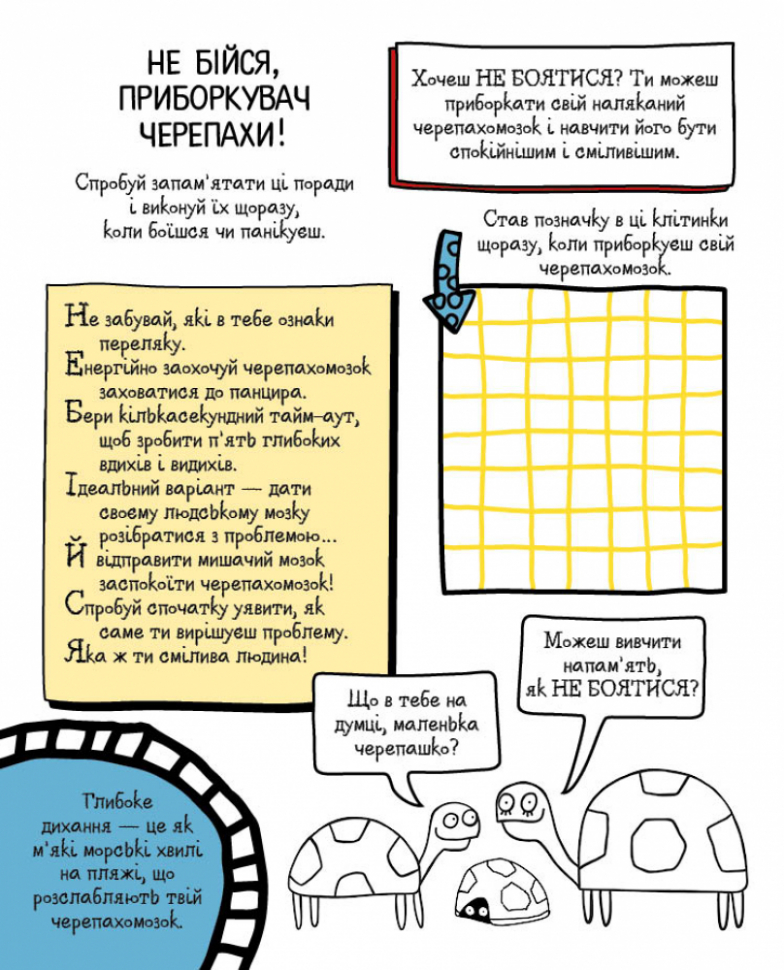 НЕ БІЙСЯ,
ПРИБОРКУВАЧ
ЧЕРЕПАХИ!
Спробуй запам'ятати ці поради
і виконуй їх щоразу,
коли боїшся чи панікуєш.
Хочеш НЕ БОЯТИСЯ? Ти можеш
приборкати свій наляканий
черепахомозок і навчити його бути
спокійнішим і сміливішим.
Став позначку в ці клітинки
щоразу, коли приборкуєш свій
черепахомозок.
Не забувай, які в тебе ознаки
переляку.
Енергійно заохочуй черепахомозок
заховатися до панцира.
Бери кількасекундний тайм-аут,
щоб зробити п'ять глибоких
вдихів і видихів.
Ідеальний варіант — дати
своєму людському мозку
розібратися з проблемою...
Й відправити мишачий мозок
заспокоїти черепахомозок!
Спробуй спочатку уявити, як
саме ти вирішуєш проблему.
Яка ж ти смілива людина!
Можеш вивчити
напам'ять,
як НЕ БОЯТИСЯ?
Що в тебе на
думці, маленька
черепашко?
Глибоке
дихання — це як
м'які морські хвилі
на пляжі, що
розслабляють твій
черепахомозок.